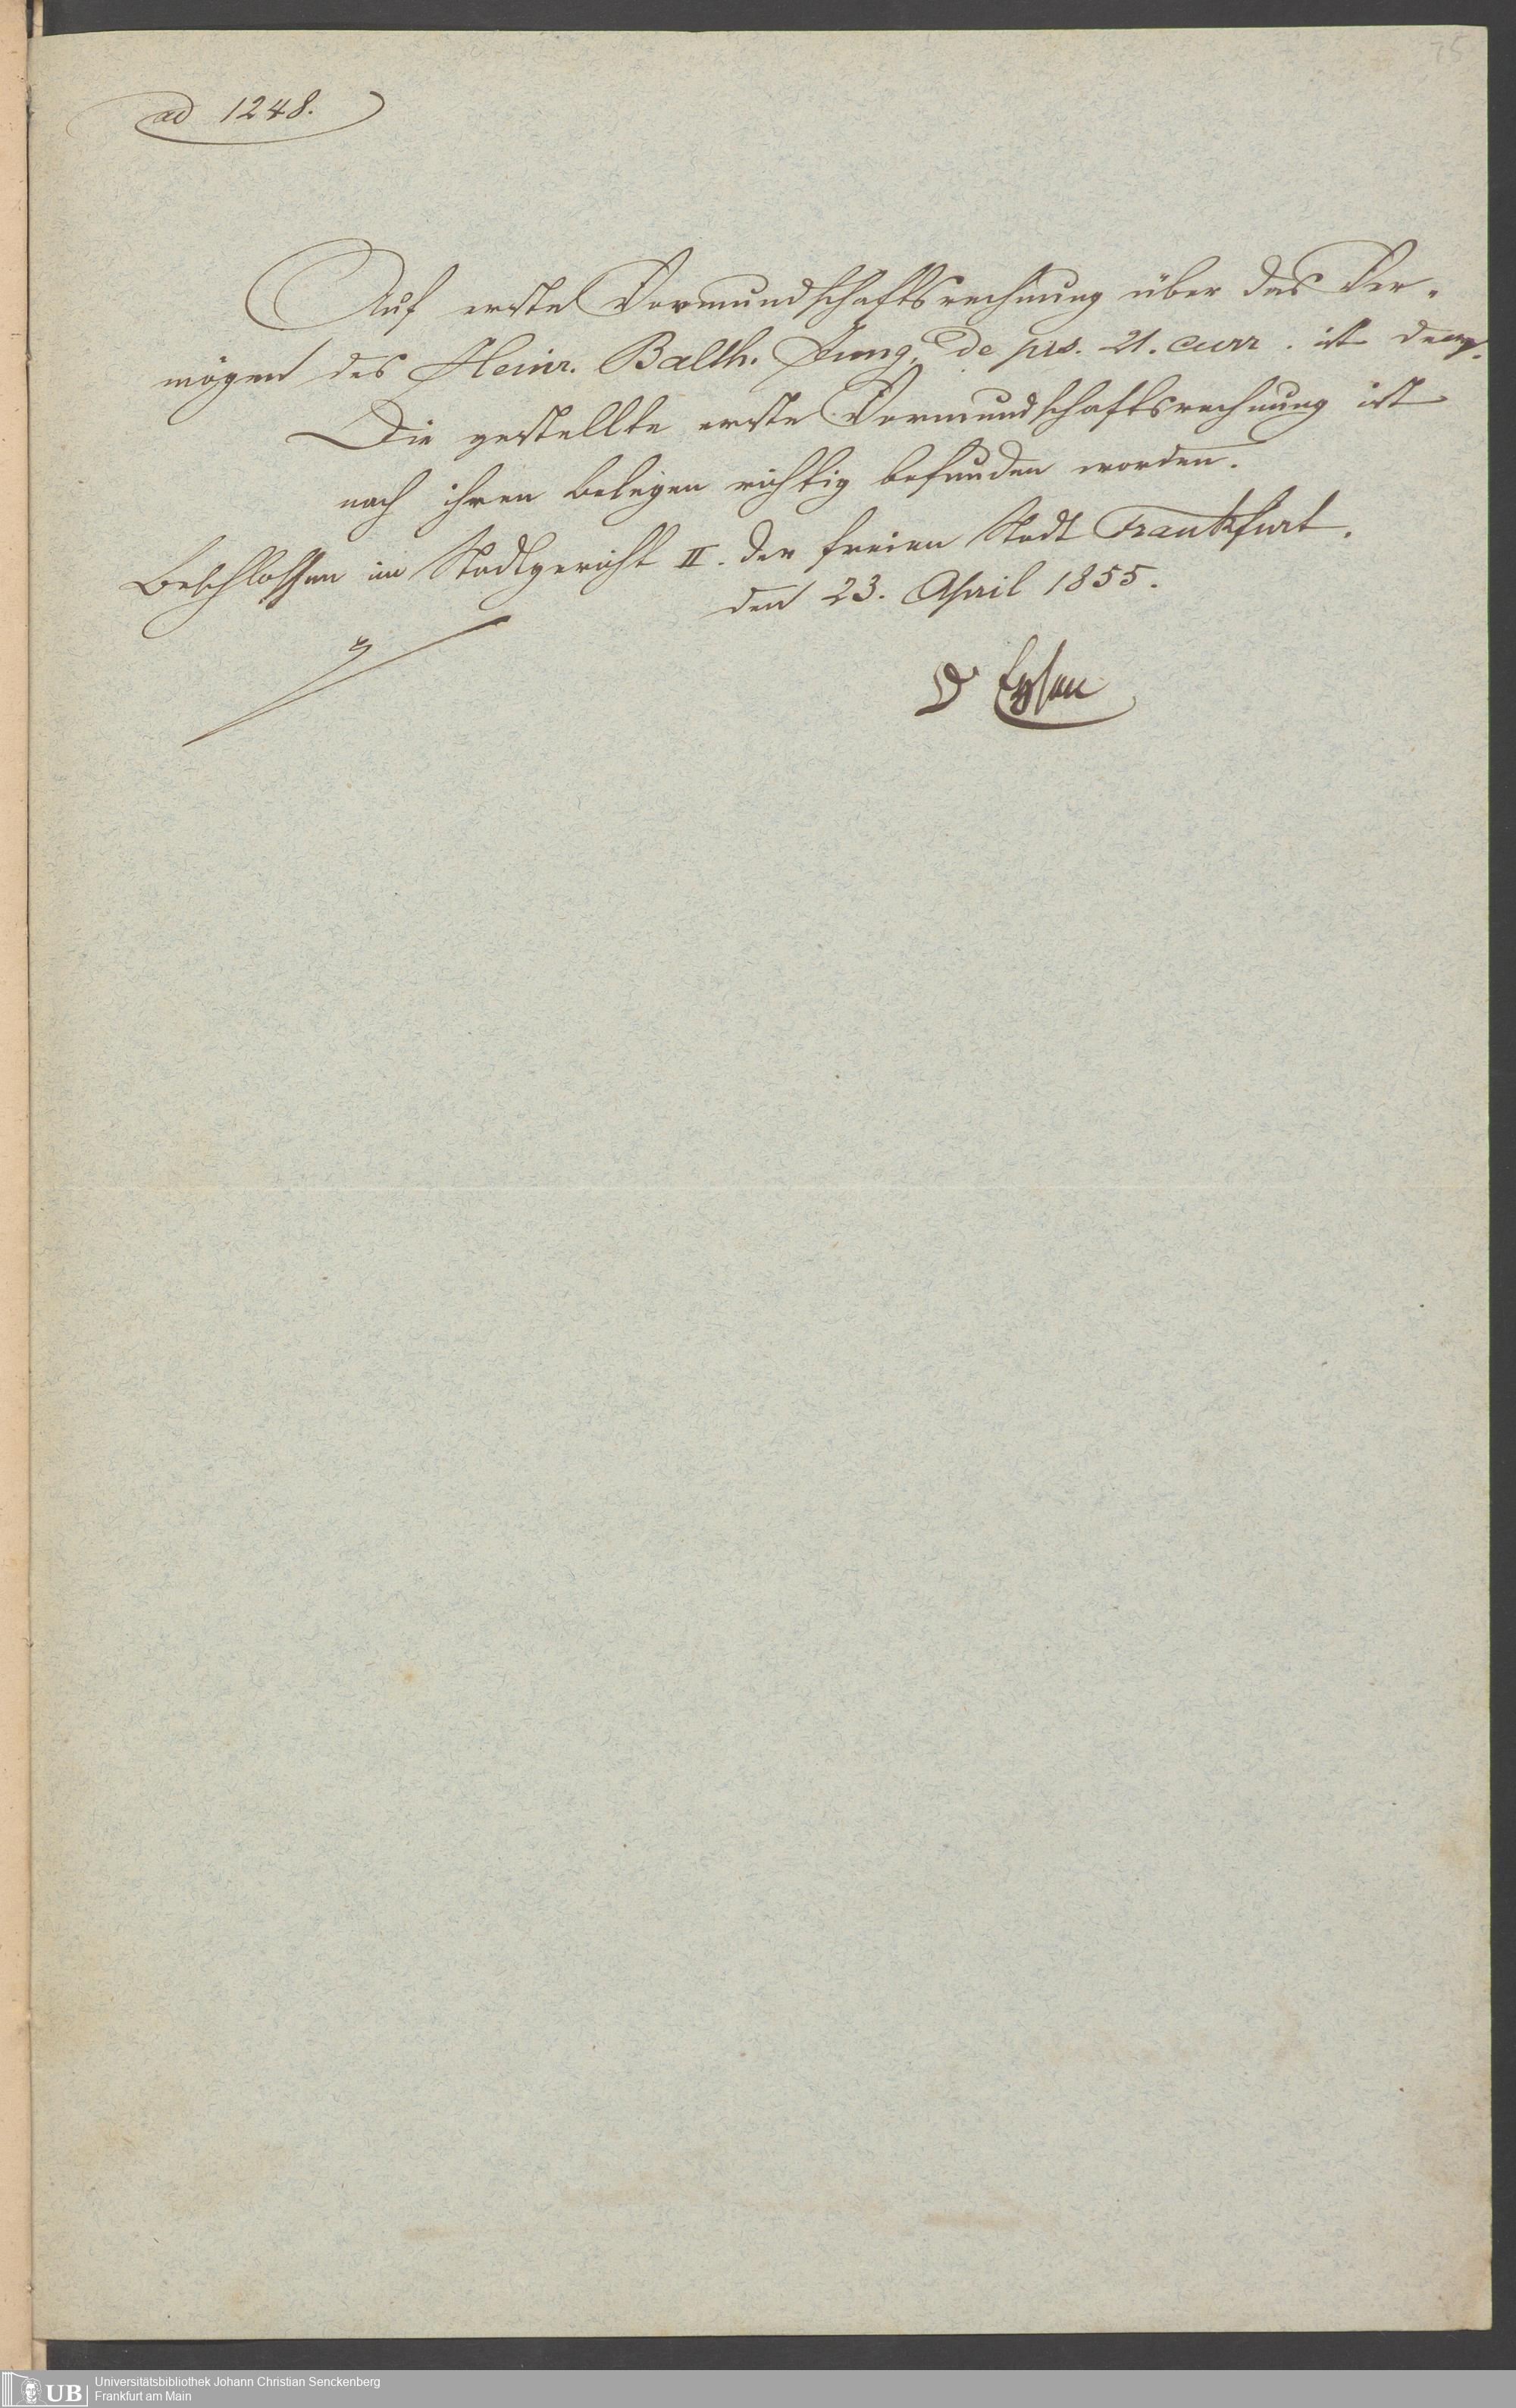 75
ad 1248.
Auf erste Vormundschaftsrechnung über das Ver-
mögen des Heinr. Balth. Jung, de prs. 21. curr. ist
Die gestellte erste Vormundschaftsrechnung ist
nach ihren Belegen richtig befunden worden.
Beschlossen im Stadtgericht II. der freien Stadt Frankfurt.
den 23. April 1855.
Dr Eysen
UB
Universitätsbibliothek Johann Christian Senckenberg
Frankfurt am Main